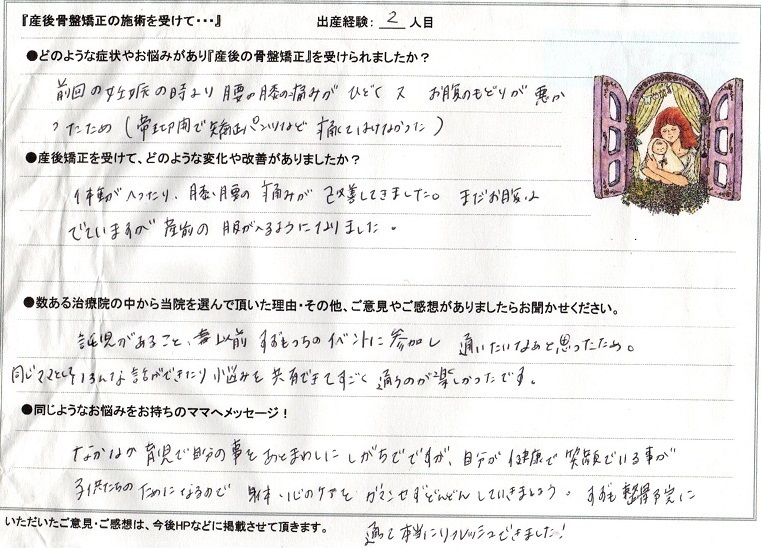 『産後骨盤矯正の施術を受けて・・・』 出産経験： 2 人目
●どのような症状やお悩みがあり『産後の骨盤矯正』を受けられましたか？
前回の妊娠の時より腰や膝の痛みが ひどく 又 お腹のもどりが悪か
ったため（帯 で矯正パンツなど 痛くてはけなかった）
●産後矯正を受けて、どのような変化や改善がありましたか？
体重がへったり、膝・腰の痛みが 改善してきました。まだお腹は
でていますが 産前の 服が入るようになりました。
●数ある治療院の中から当院を選んで頂いた理由・その他、ご意見やご感想がありましたらお聞かせください。
託児があること、 以前 すずもっちの イベントに 参加し 通いたいなぁと思ったため。
同じママとしていろんな話ができたり 悩みを 共有できてすごく 通うのが楽しかったです。
●同じようなお悩みをお持ちのママへメッセージ！
なかなか 育児で自分の事を あとまわしに しがちですが、自分が 健康で 笑顔でいる事が
子供たちの ためになるので 身体・心のケアを ガマンせずどんどん していきましょう。 すずも 整骨院に
いただいたご意見・ご感想は、今後HPなどに掲載させて頂きます。
通って本当にリフレッシュできました！